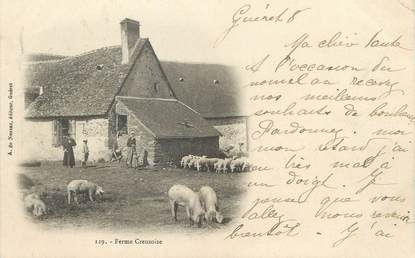 Guéret 8
Ma chère tante
A l'occasion du
nouvel an recevez
nos meilleurs
souhaits de bonheur
Pardonnez-moi
mon retard j'ai
eu très mal à
un doigt. Je
pense que vous
allez nous revenir
bientôt. J'ai
A. de Nussac, éditeur, Guéret
119. - Ferme Creusoise